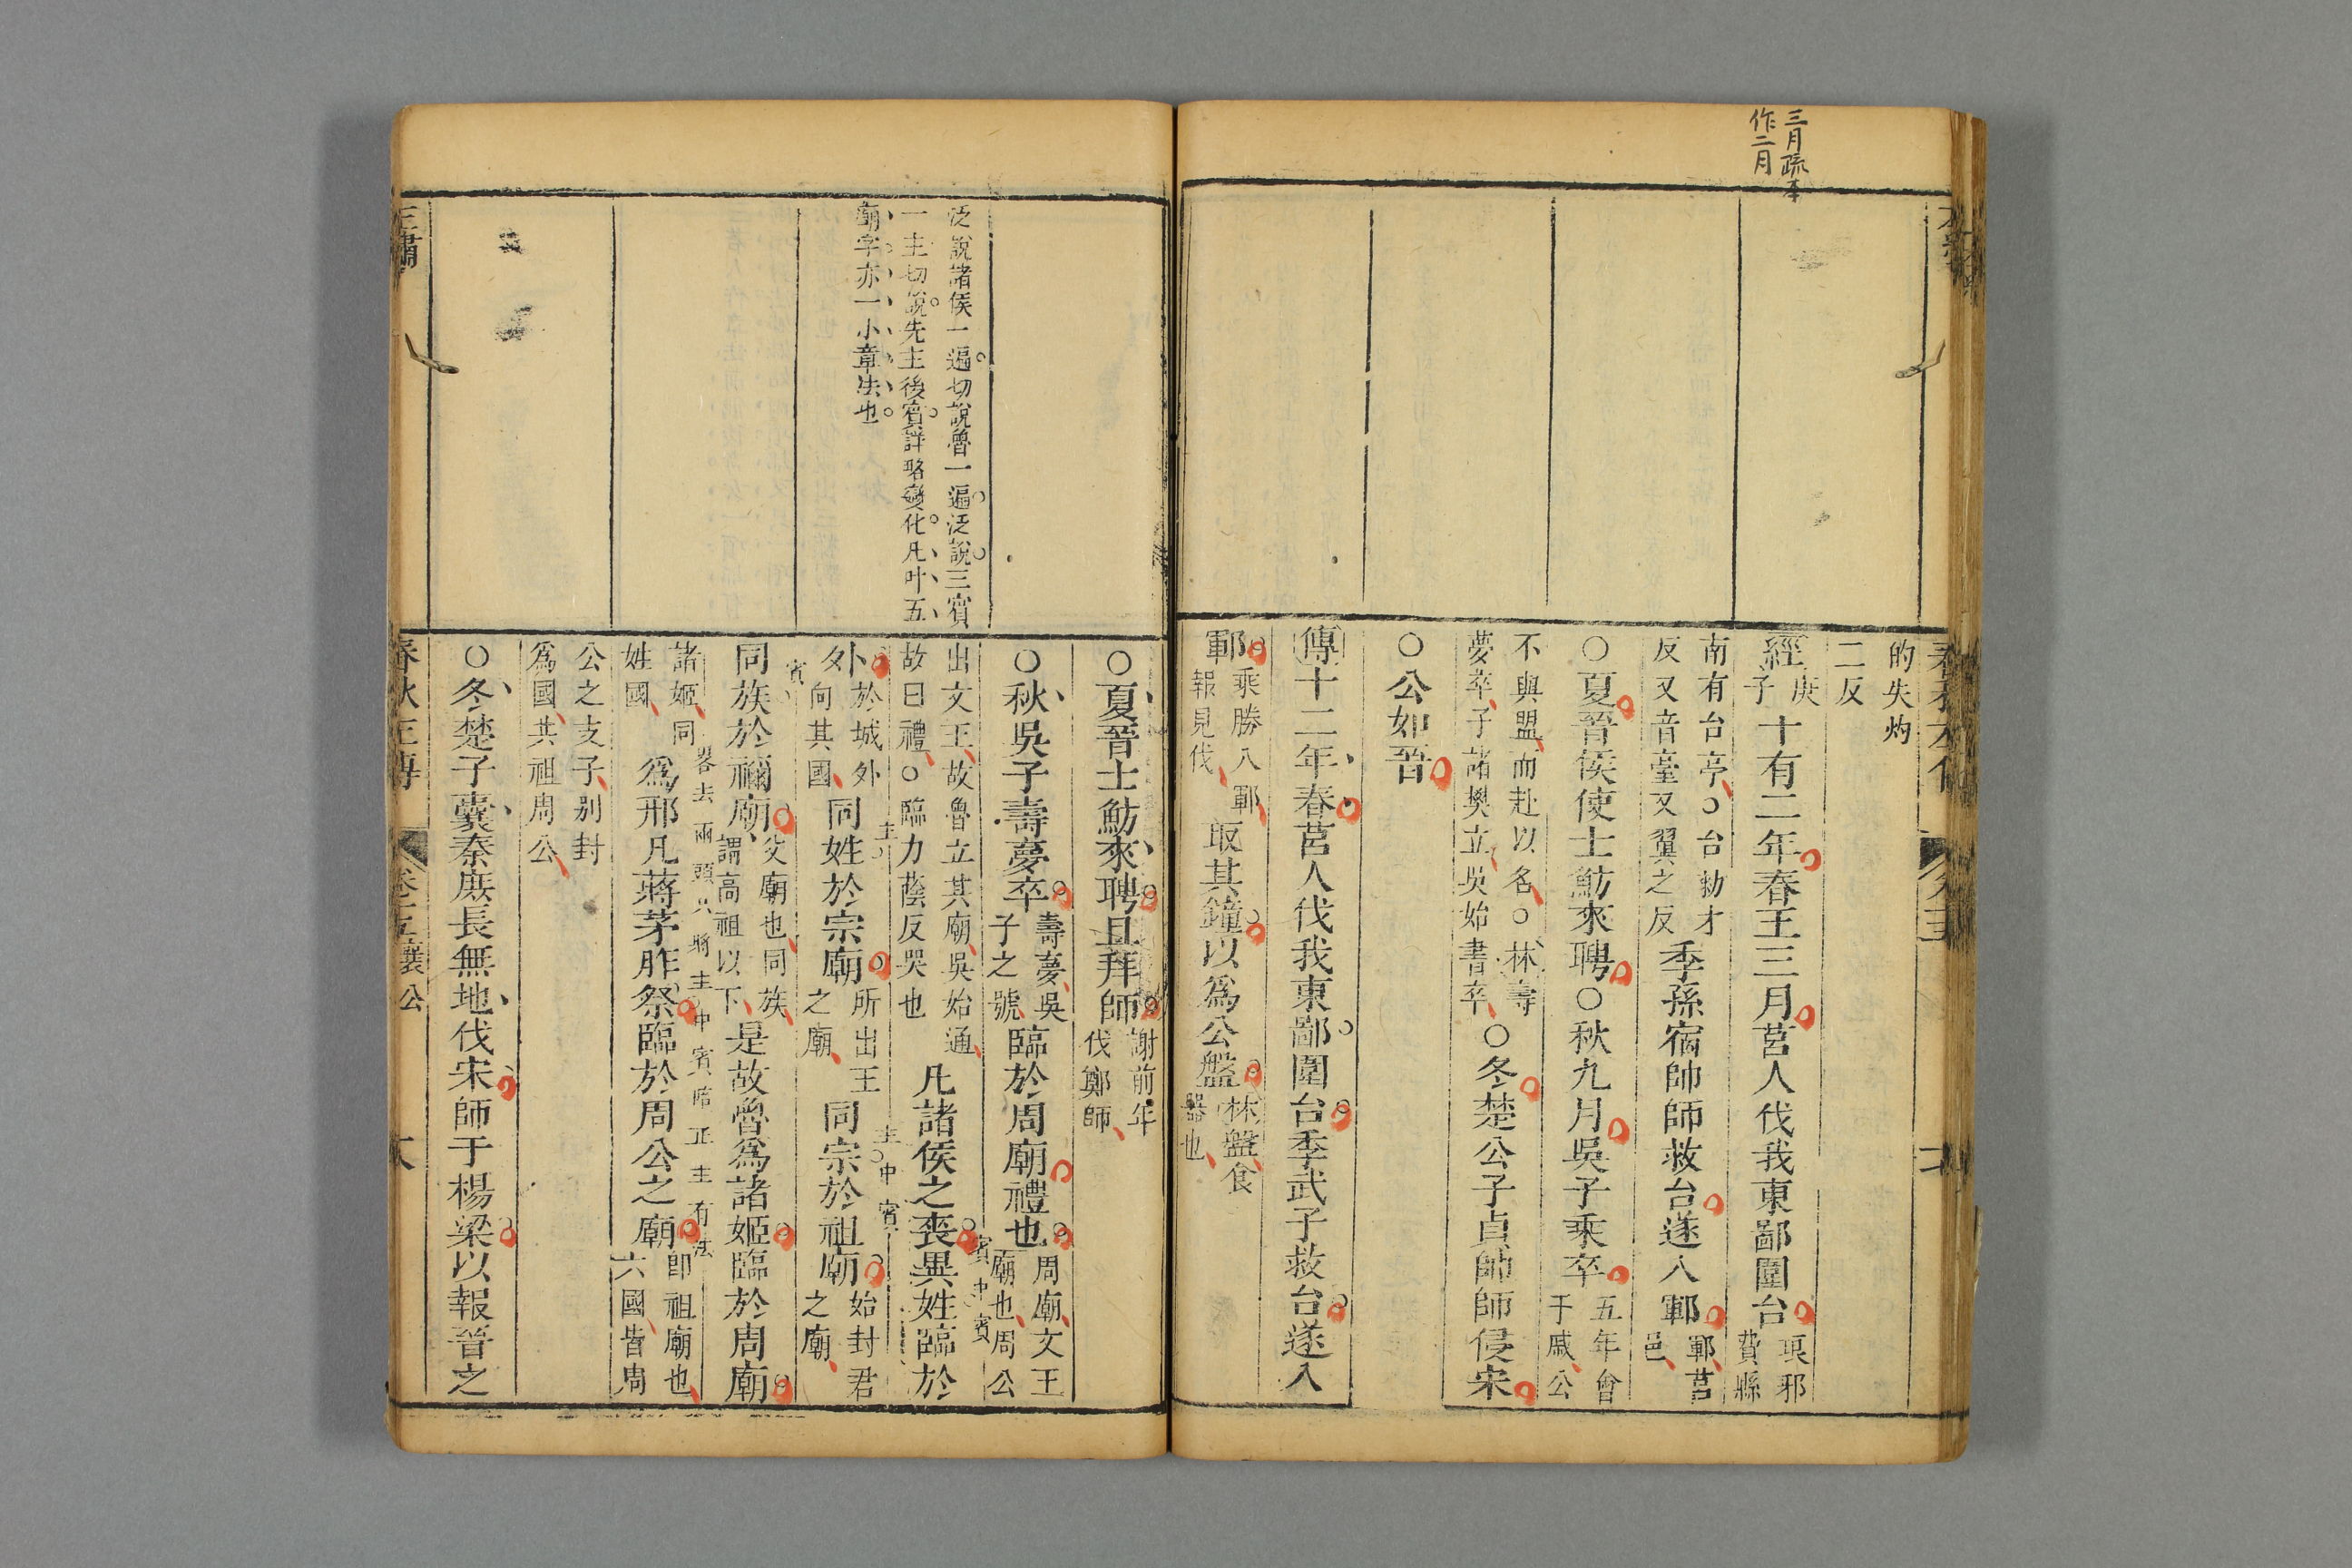 三月疏本
作二月
的失灼
二反
經庚子十有二年春王三月莒人伐我東鄙圍台琅邪費縣
南有台亭○台勑才
反又音臺又翼之反
季孫宿帥師救台遂入鄆鄆莒邑
○夏晉侯使士魴來聘○秋九月吳子乘卒五年會于戚公
不與盟而赴以名○林壽
夢卒子諸樊立吳始書卒
○冬楚公子貞帥師侵宋
○公如晉
傳十二年春莒人伐我東鄙圍台季武子救台遂入
鄆乘勝入鄆報見伐取其鐘以爲公盤林盤食器也
○夏晉士魴來聘且拜師謝前年伐鄭師
○秋吳子壽夢卒壽夢吳子之號臨於周廟禮也周廟文王廟也周公
出文王故魯立其廟吳始通
故曰禮○臨力蔭反哭也
凡諸侯之喪異姓臨於
賓中賓
外於城外向其國同姓於宗廟所出王之廟同宗於祖廟始封君之廟
主
主中賓
同族於禰廟父廟也同族謂高祖以下是故魯爲諸姬臨於周廟
賓
諸姬同姓國爲邢凡蔣茅胙祭臨於周公之廟即祖廟也六國皆周
畧去兩頭只將主中賓陪正主有法
公之支子别封
爲國共祖周公
○冬楚子囊秦庶長無地伐宋師于楊梁以報晉之
泛說諸侯一遍切說魯一遍泛說三賓
一主切說先主後賓詳略變化凡叶五
廟字亦一小章法也
卷十五襄公